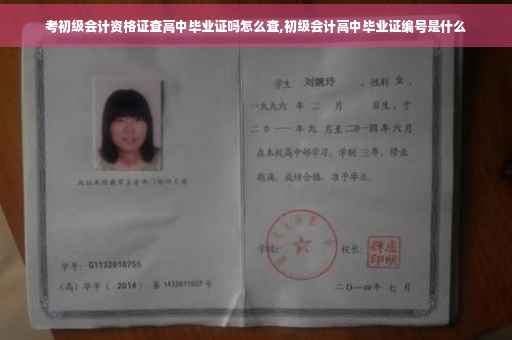 考初级会计资格证查高中毕业证吗怎么查,初级会计高中毕业证编号是什么
学生 刘婉玲 ,性别 女 ,
一九九六 年 二 月 日生,于
二〇一一年 九 月至二〇一四年 六 月
在本校高中部学习,学制 三年,修业
期满,成绩合格,准予毕业。
学号: G1132010755
(高) 毕字 ( 2014 ) 第 1432011007 号
学校:
校长:
二〇一四年 七 月